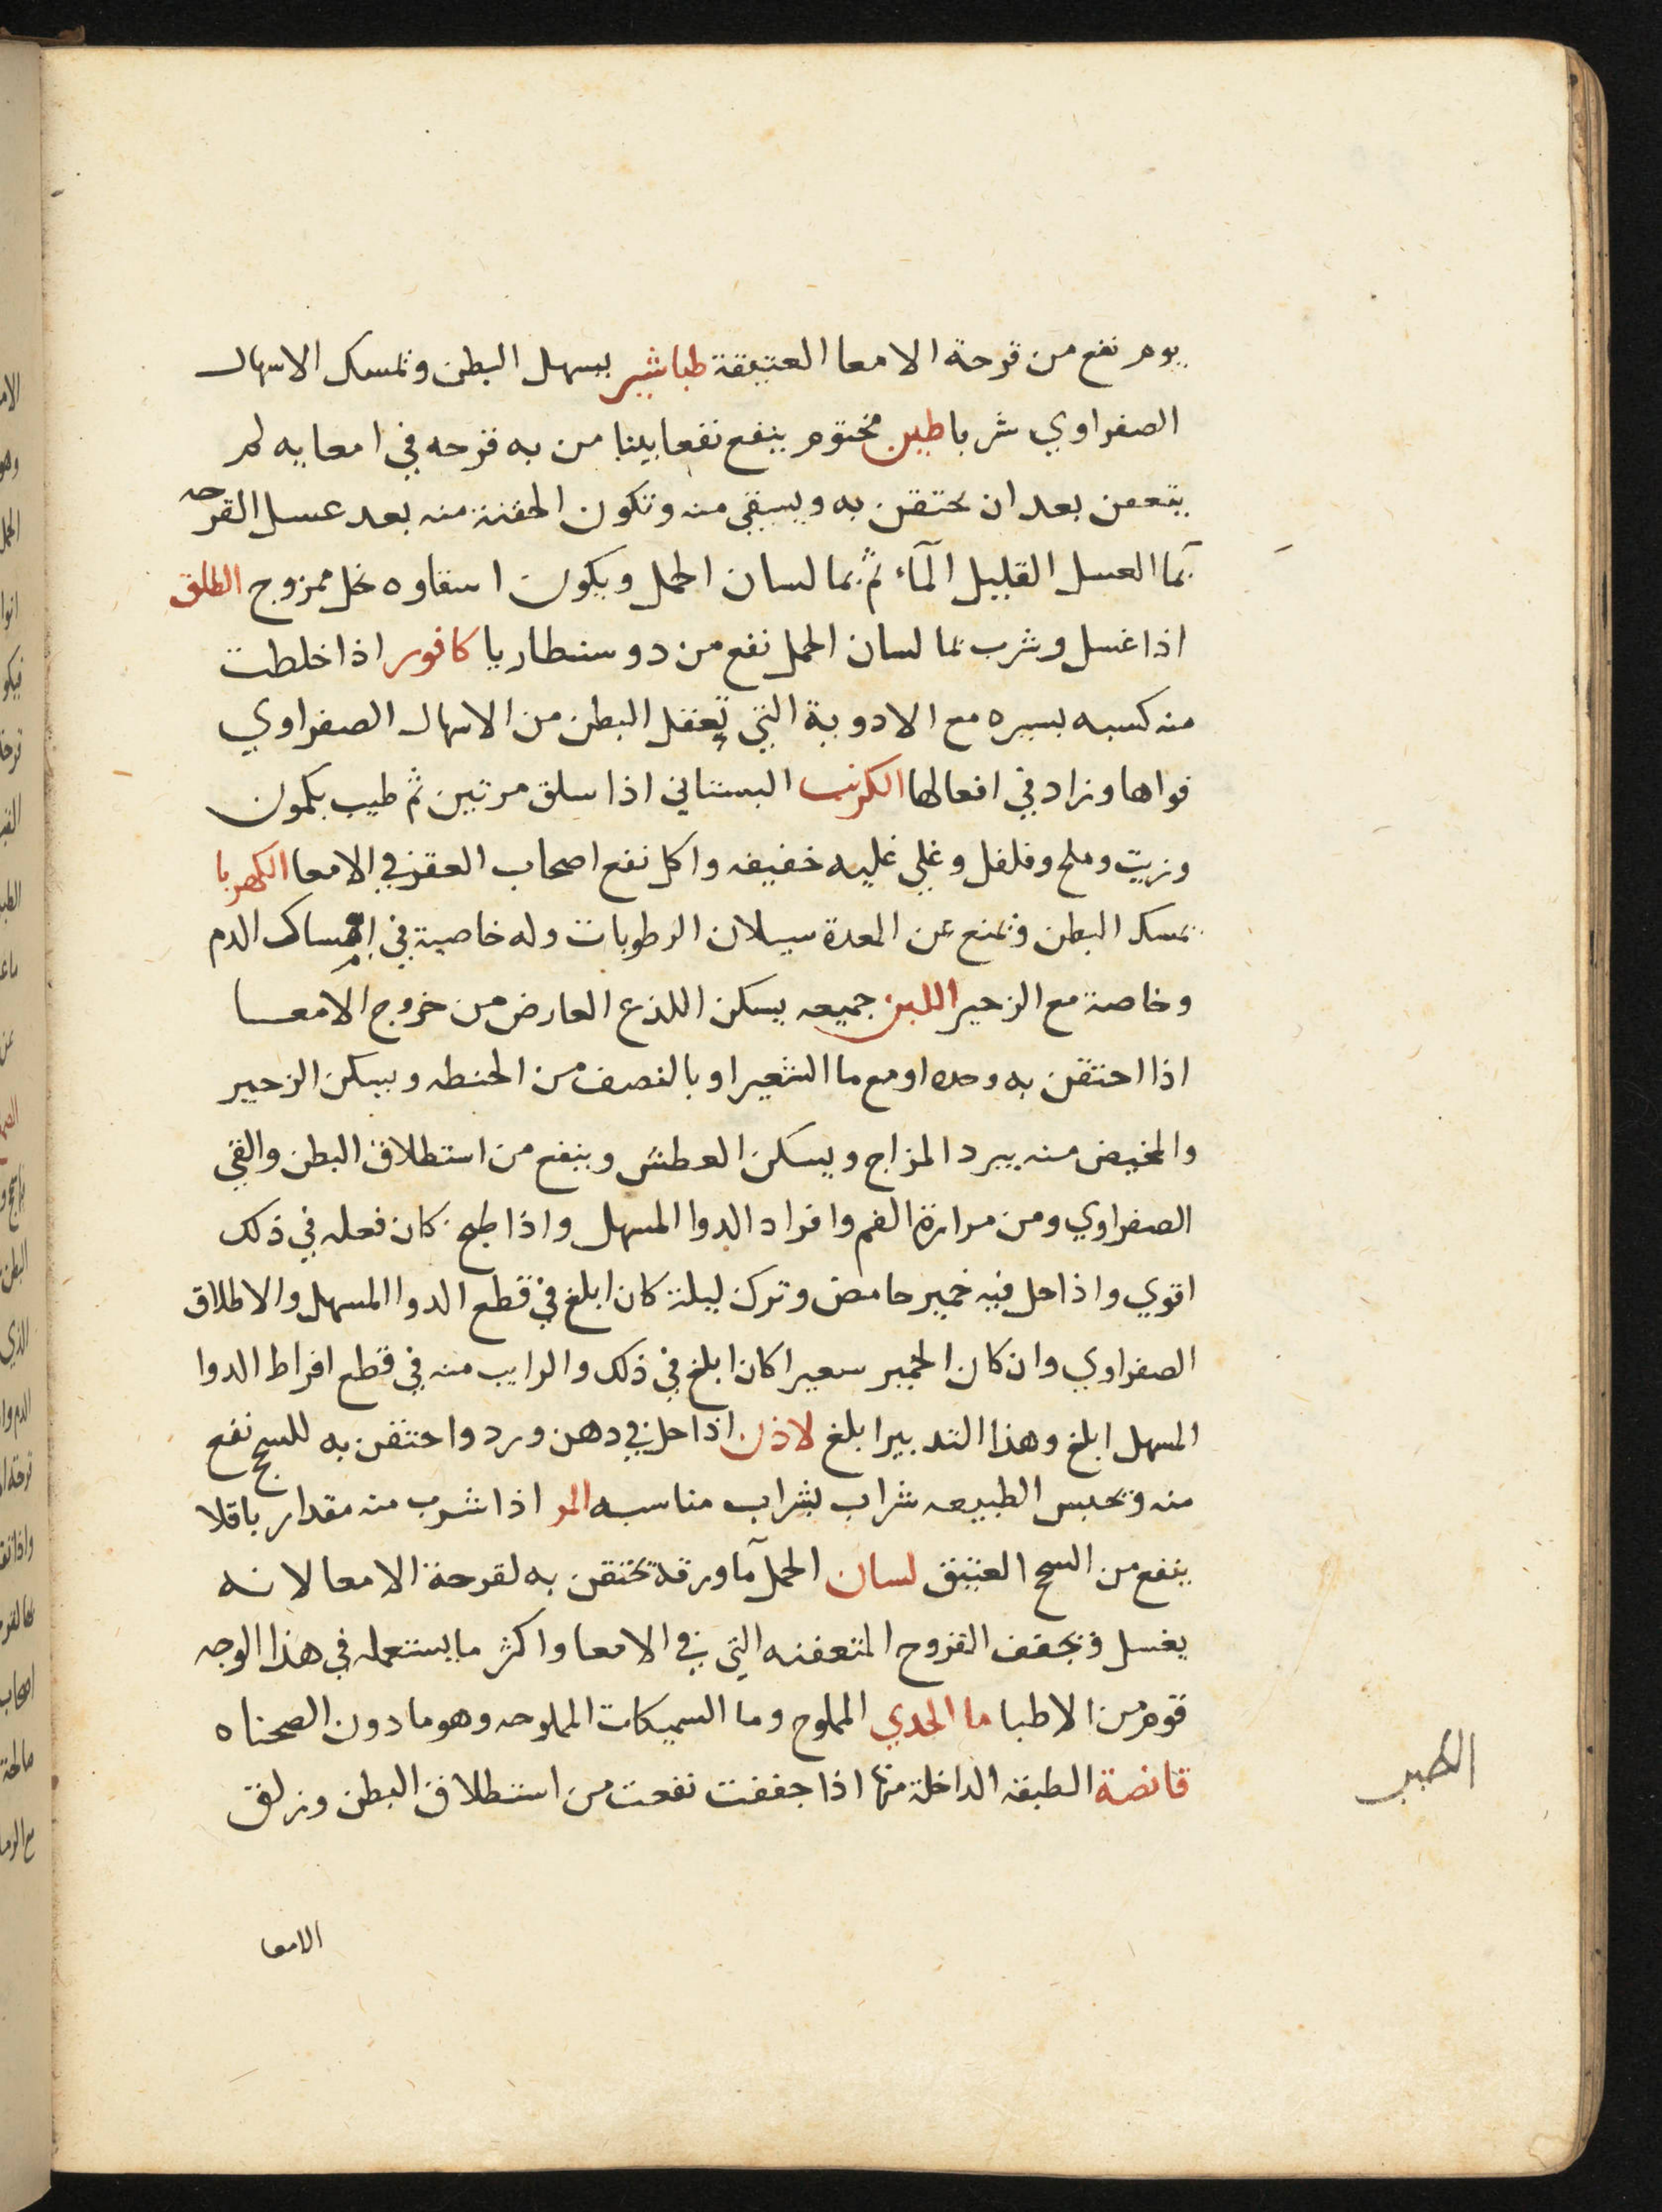 يوم نفع من قرحة الامعا العتيقة طباشير يسهل البطن وتمسك الاسهال
الصفراوي شربا طين مختوم ينفع نفعا بينا من به قرحه في امعايه لم
يتعفن بعد ان يحتقن به ويسقي منه وتكون الحقنة منه بعد غسل القرحه
بما العسل القليل المآء ثم بما لسان الحمل ويكون اسقاوه بخل ممزوج الطلق
اذا غسل وشرب بما لسان الحمل نفع من دوسنطاريا كافور اذا خلطت
منه كسبه يسيره مع الادوية التي تعقل البطن من الاسهال الصفراوي
قواها وزاد في افعالها الكرنب البستاني اذا سلق مرتين ثم طيب بكمون
وزيت وملح وفلفل وغلي غليه خفيفه واكل نفع اصحاب العقر في الامعا الكهربا
يمسك البطن ويمنع عن المعدة سيلان الرطوبات وله خاصية في امساك الدم
وخاصة مع الزحير اللبن جميعه يسكن اللذع العارض من خروج الامعا
اذا احتقن به وحده او مع ما الشعير او بالنصف من الحنطه ويسكن الزحير
والمخيض منه يبرد المزاج ويسكن العطش وينفع من استطلاق البطن والقي
الصفراوي ومن مرارة الفم وافراد الدوا المسهل واذا طبخ كان فعله في ذلك
اقوي واذا حل فيه خمير حامض وترك ليلة كان ابلغ في قطع الدوا المسهل والاطلاق
الصفراوي وان كان الخمير سعيرا كان ابلغ في ذلك والرايب منه في قطع افراط الدوا
المسهل ابلغ وهذا التدبير ابلغ لاذن اذا حل في دهن ورد واحتقن به للسحج نفع
منه ويحبس الطبيعه شراب بشراب مناسبه المر اذا شرب منه مقدار باقلا
ينفع من السحج العتيق لسان الحمل مآ ورقه يحتقن به لقرحة الامعا لانه
يغسل ويجفف القروح المتعفنه التي في الامعا واكثر ما يستعمله في هذا الوجه
قوم من الاطبا ما الجدي المملوح وما السميكات المملوحه وهو ما دون الصحناه
قانصة الطبقه الداخلة منها اذا جففت نفعت من استطلاق البطن وزلق
الطير
الامعا